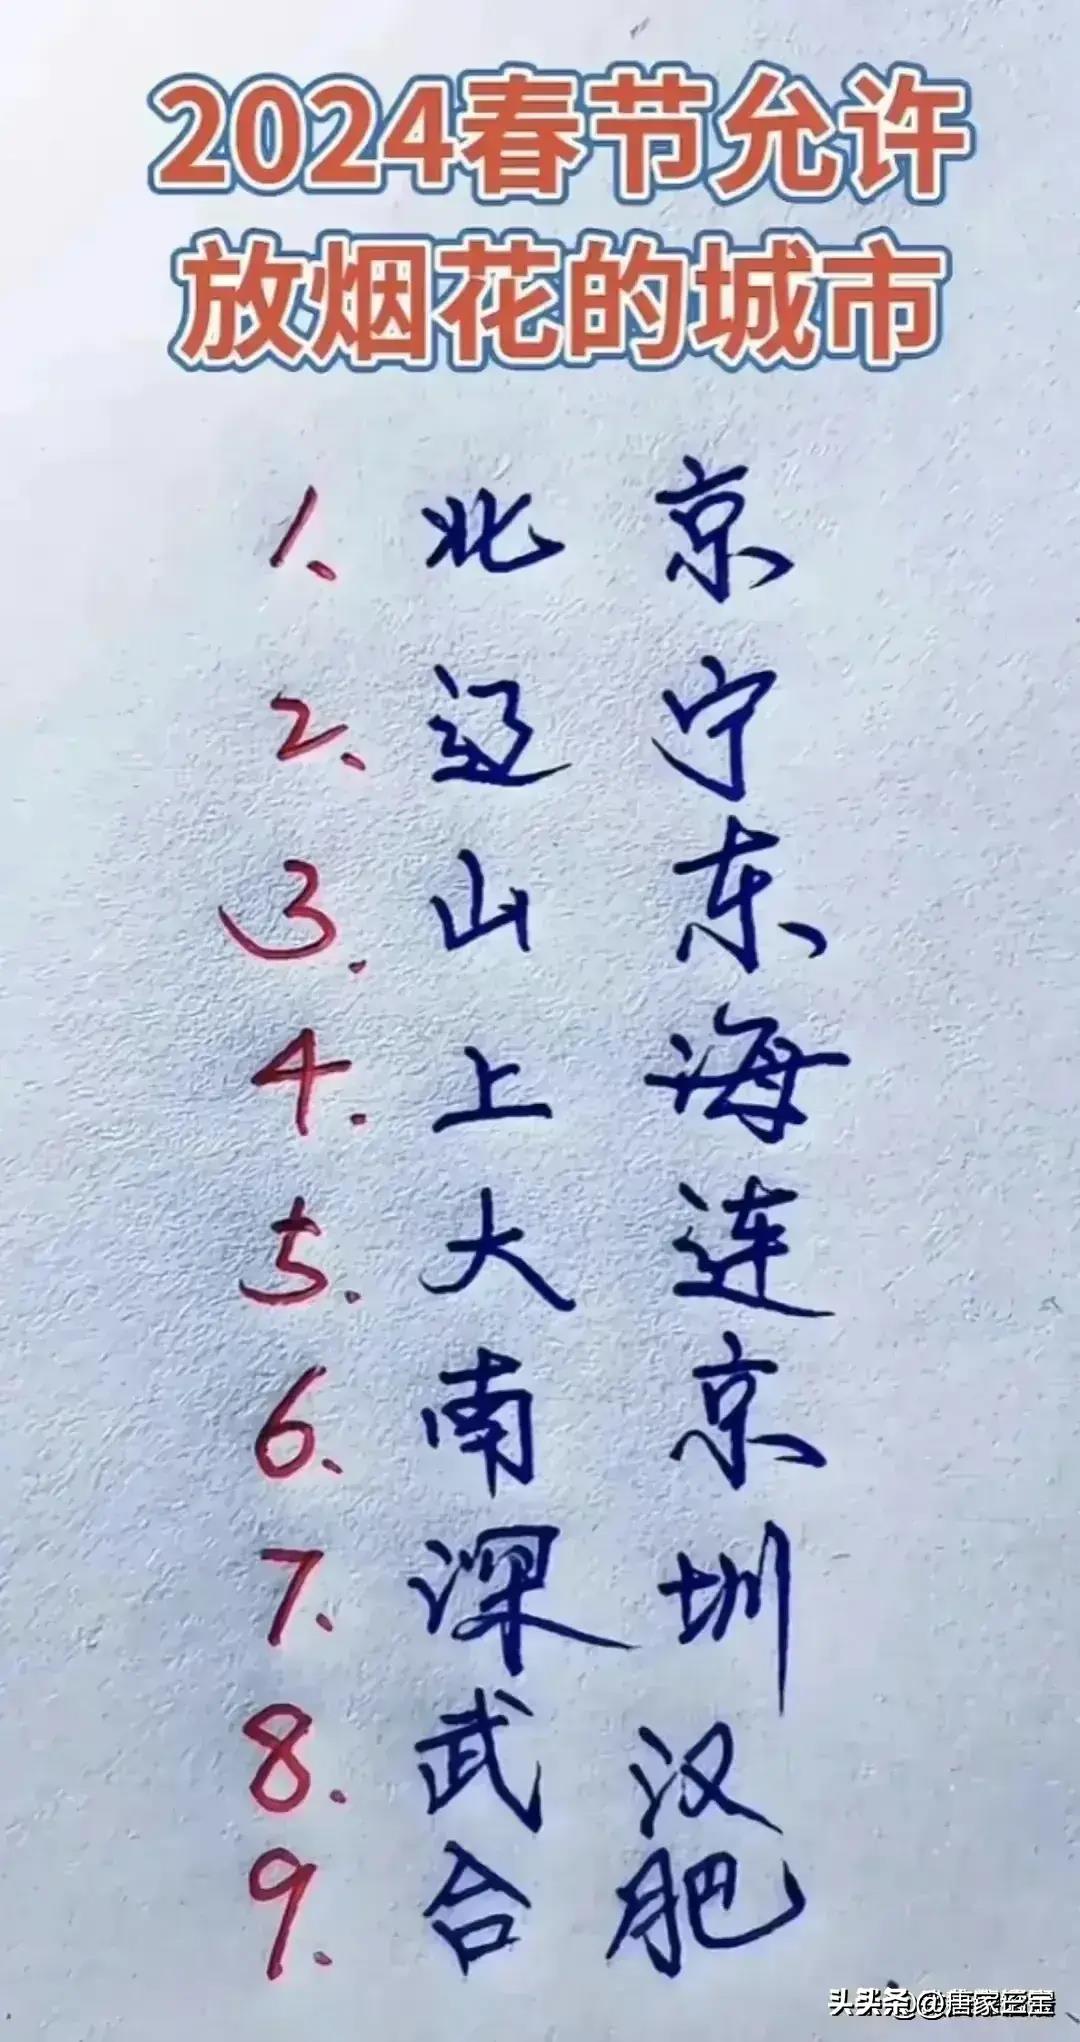 2024春节允许
放烟花的城市
1、北京
2、辽宁
3.山东
4.上海
5.大连
6、南京
7、深圳
8.武汉
9.合肥
头条 @唐家